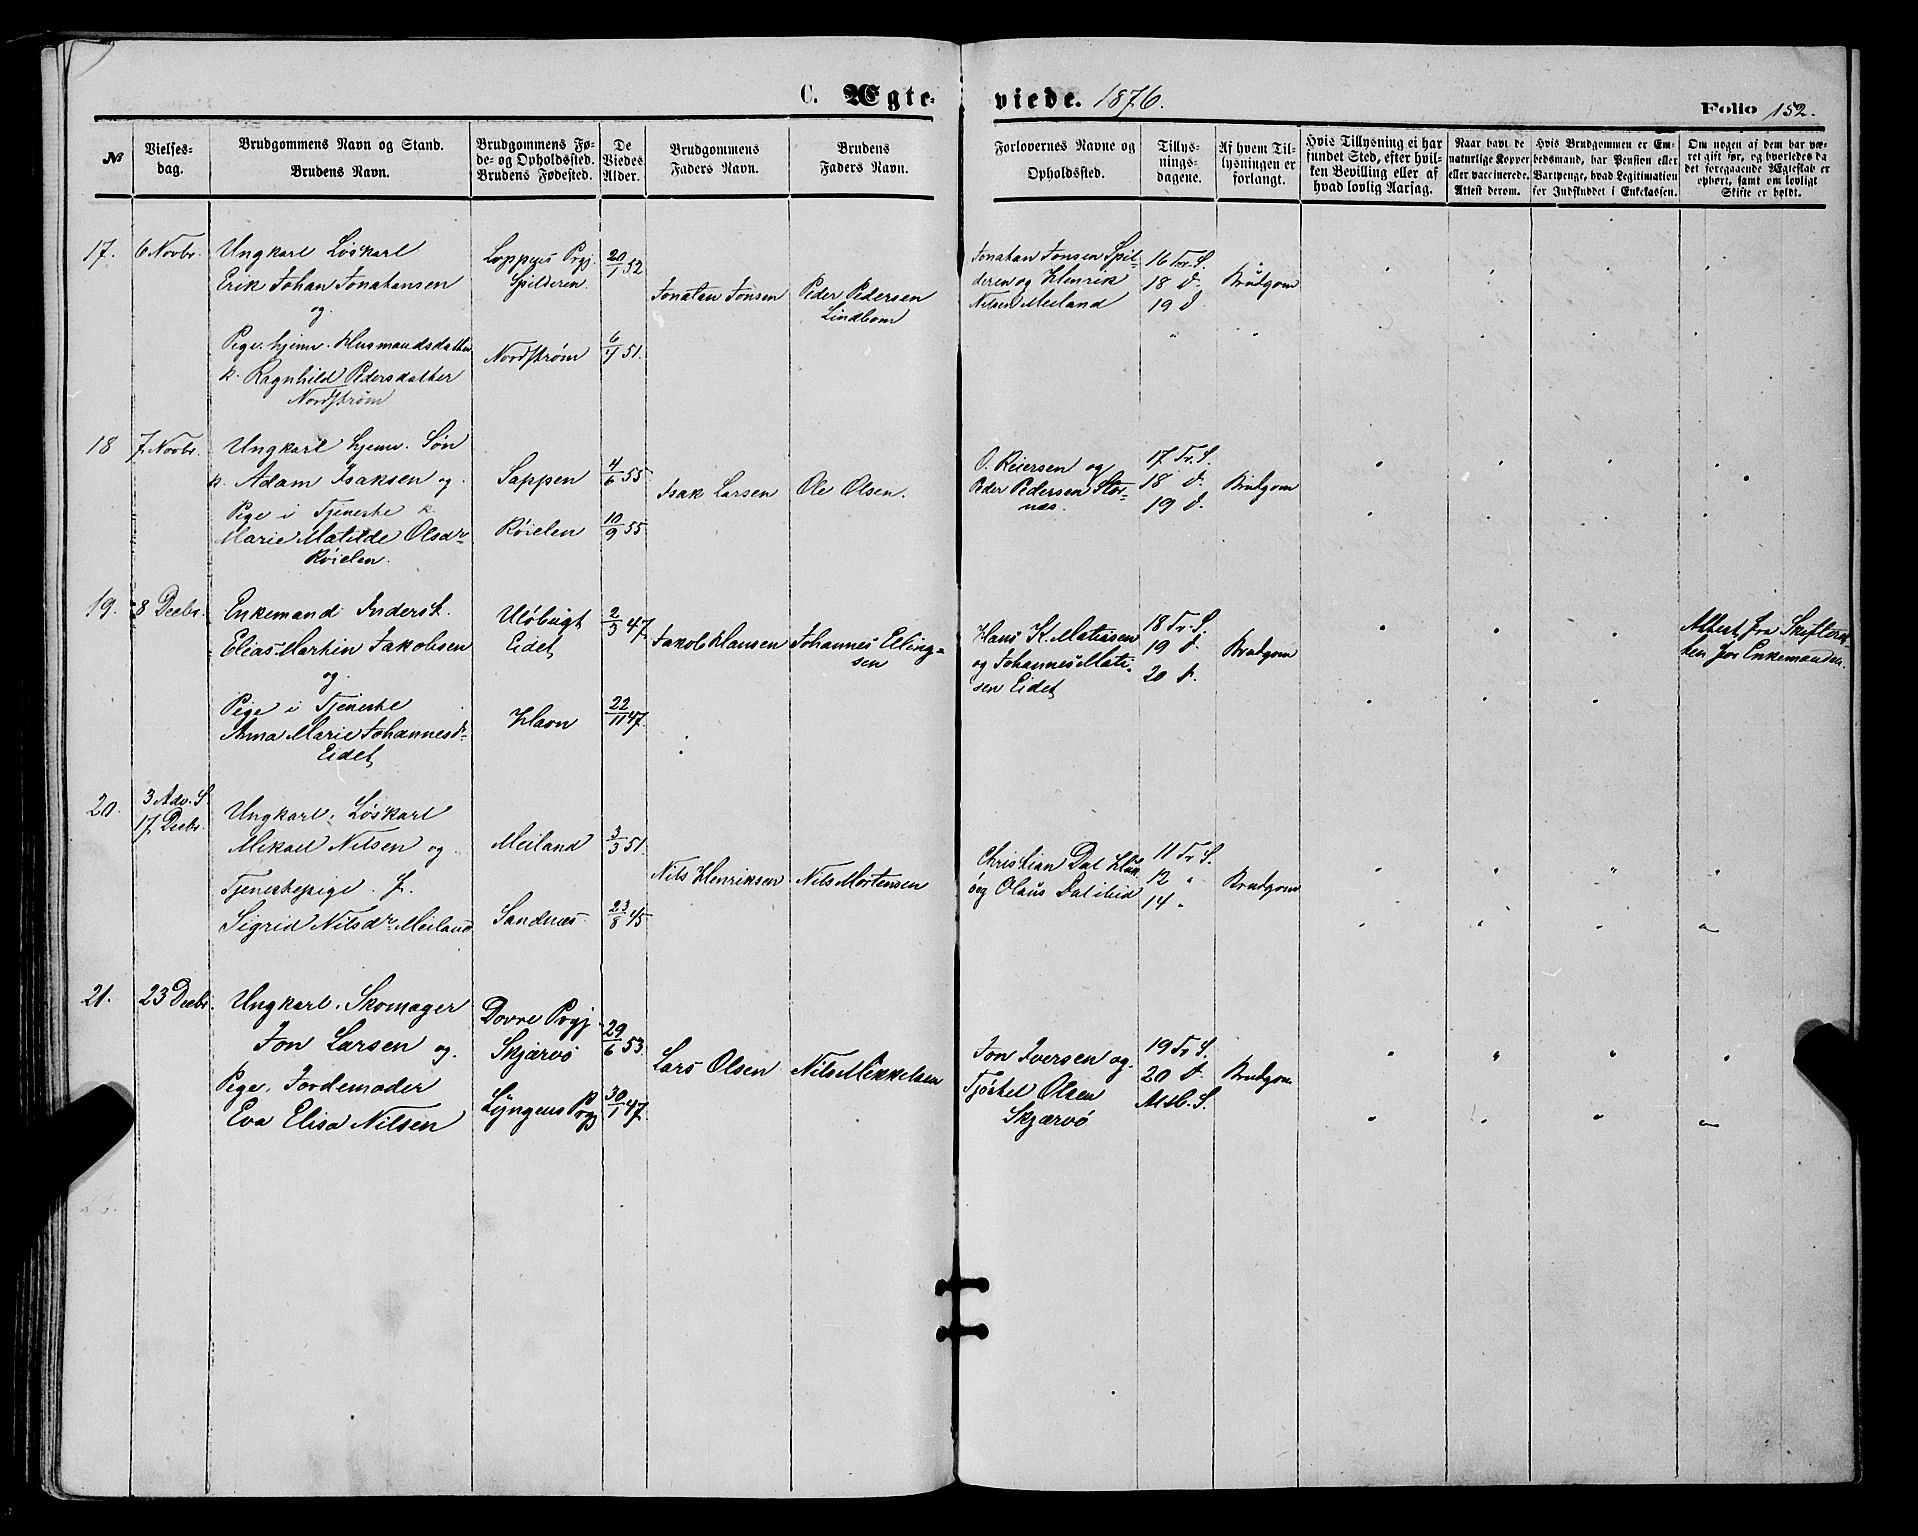 C. Ægte-
viede. 1876.
Folio 152.
№
Vielses-
dag.
Brudgommens Navn og Stand.
Brudens Navn.
Brudgommens Fø-
de- og Opholdssted.
Brudens Fødested.
De
Viedes
Alder.
Brudgommens
Faders Navn.
Brudens
Faders Navn.
Forlovernes Navne og
Opholdssted.
Tillys-
nings-
dagene.
Af hvem Til-
lysningen er
forlangt.
Hvis Tillysning ei har
fundet Sted, efter hvil-
ken Bevilling eller af
hvad lovlig Aarsag.
Naar havt de
naturlige Kopper
eller vaccinerede.
Attest derom.
Hvis Brudgommen er Em-
bedsmand, har Pension eller
Vartpenge, hvad Legitimation
for Indskuddet i Enkekassen.
Om nogen af dem har væ-
ret gift før, og hvorledes da
det foregaaende Ægteskab er
ophørt, samt om lovligt
Skifte er holdt.
17.
6 Novbr.
Ungkarl Løskarl
Erik Johan Jonatansen
og
Pige. hjemv. Husmandsdatter
k. Ragnhild Pedersdatter
Nordstrøm
Loppens Prgj.
Spilderen.
Nordstrøm
20/1 52
6/4 51.
Jonatan Jonsen
Peder Pedersen
Lindbom
Jonatan Jonsen Spil-
deren og Henrik
Nilsen Meiland
16 Tr. S.
18 d.
19 d
Brudgom
18
7. Novbr.
Ungkarl hjemv. Søn
k. Adam Isaksen og
Pige i Tjeneste k.
Marie Matilde Olsdr
Røielen.
Sappen
Røielen
4/6 55
10/9 55
Isak Larsen
Ole Olsen.
O. Reiersen og
Peder Pedersen Stor-
næs.
17 Tr. S.
18 d.
19 d.
Brudgom
19.
8 Decbr.
Enkemand Inderst.
Elias Martin Jakobsen
og
Pige i Tjeneste
Anna Marie Johannesdr
Eidet
Uløbugt
Eidet
Havn
2/3 47.
22/11 47.
Jakob Hansen
Johannes Elling-
sen
Hans K. Matiasen
og Johannes Mati-
sen Eidet
18 Tr. S.
19 d
20 d.
Brudgom
Attest fra Skifteret-
ten for Enkemanden.
20.
3 Adv. S
17 Decbr.
Ungkarl. Løskarl
Mikael Nilsen og
Tjenestepige. f.
Sigrid Nilsdr Meiland
Meiland
Sandnæs
3/3 51.
23/8 45
Nils Henriksen
Nils Mortensen
Christian Dal
og Olaus Dal ibid
11 Tr. S.
12 "
14 "
Brudgom
21.
23 Decbr.
Ungkarl. Skomager
Jon Larsen og
Pige. Jordemoder
Eva Elisa Nilsen
Dovre Prgj
Skjærvø
Lyngens Prgj
29/6 53.
30/1 47.
Lars Olsen
Nils Mikkelsen
Jon Iversen og
Tjøstel Olsen
Skjærvø
19 Tr S.
20 d.
Brudgom